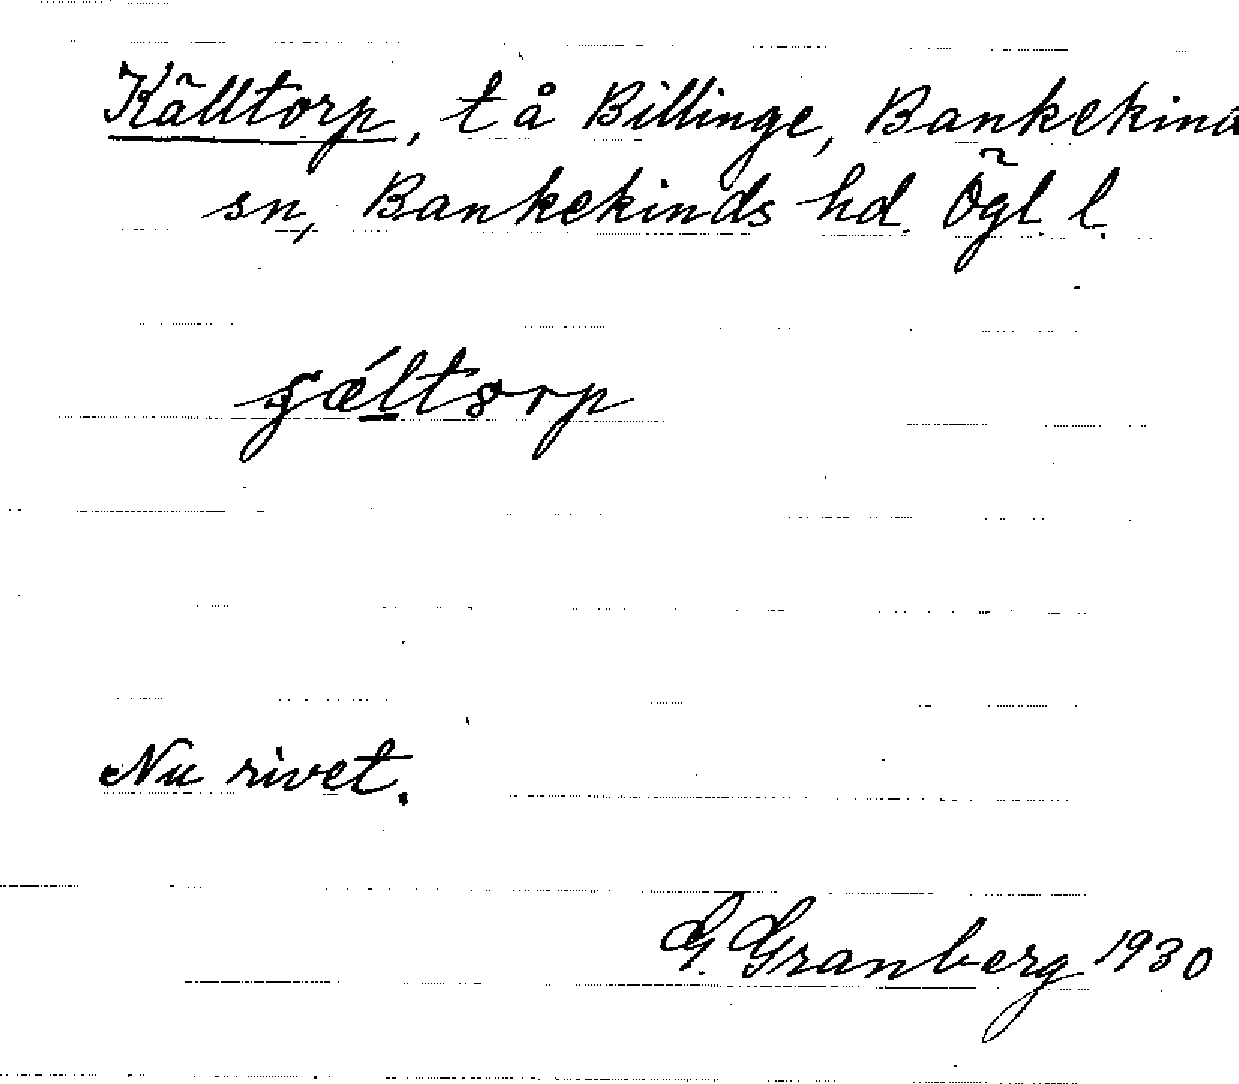 Källtorp, t å Billinge, Bankekind
sn, Bankekinds hd. Ögl. l.
gǽltorp
Nu rivet.
G. Granberg 1930